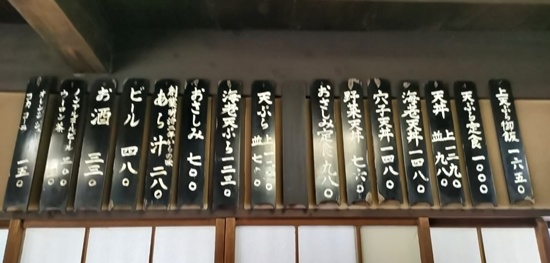 上天ぷら御飯 一六五〇
天ぷら定食 一〇〇〇
天丼 上 一二九〇 並 九八〇
海老天丼 一四八〇
穴子天丼 一四八〇
野菜天丼 七六〇
おさしみ定食 九八〇
天ぷら 上 並
海老天ぷら 一二二〇
おさしみ 七〇〇
あら汁 二八〇
ビール 四八〇
お酒 三三〇
ノンアルコールビール
ウーロン茶
一五〇